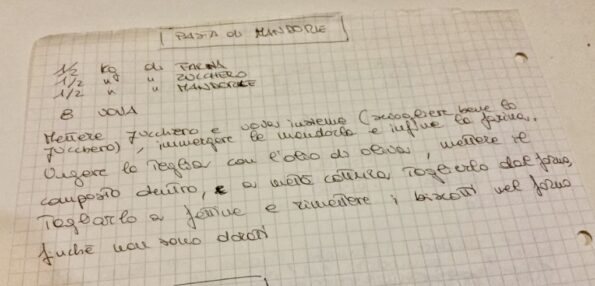 PASTA di MANDORLE
1/2 kg di FARINA
1/2 " " ZUCCHERO
1/2 " " MANDORLE
8 UOVA
Mettere zucchero e uova insieme (sciogliere bene lo
zucchero), immergere le mandorle e infine la farina.
Ungere la teglia con l'olio di oliva, mettere il
composto dentro, e a metà cottura toglierlo dal forno,
Tagliarlo a fettine e rimettere i biscotti nel forno
finché non sono dorati